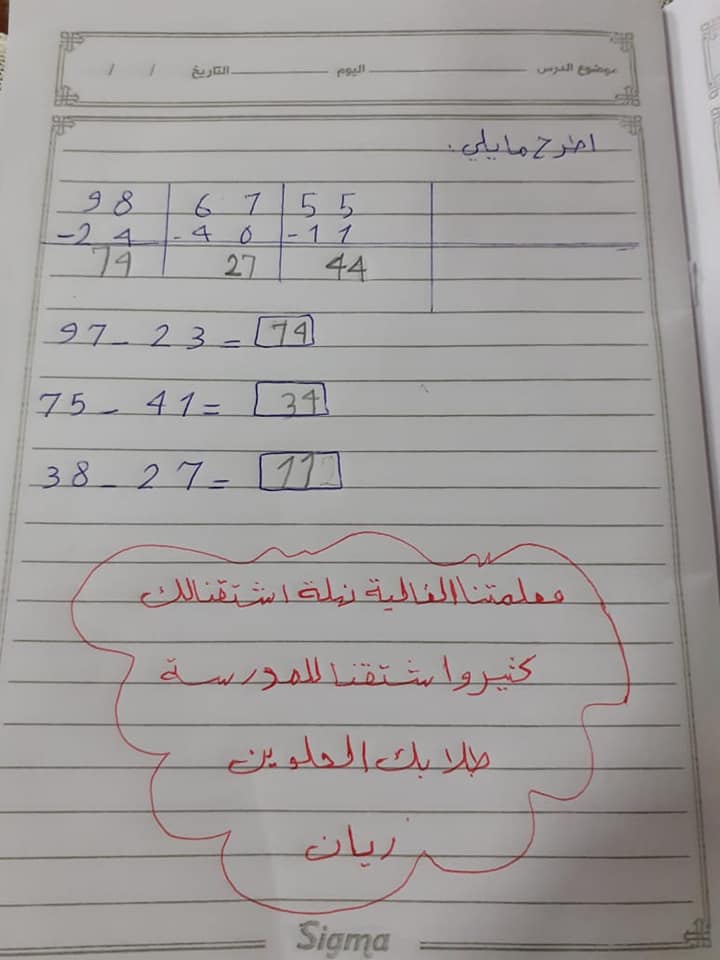 موضوع الدرس ______ اليوم ______ التاريخ / /
اطرح مايلي .
98 67 55
-24 -40 -11
74 27 44
97 - 23 = 74
75 - 41 = 34
38 - 27 = 11
معلمتنا الغالية نهلة اشتقنالك
كثير واشتقنا للمدرسة
طلابك الحلوين
ريان
Sigma